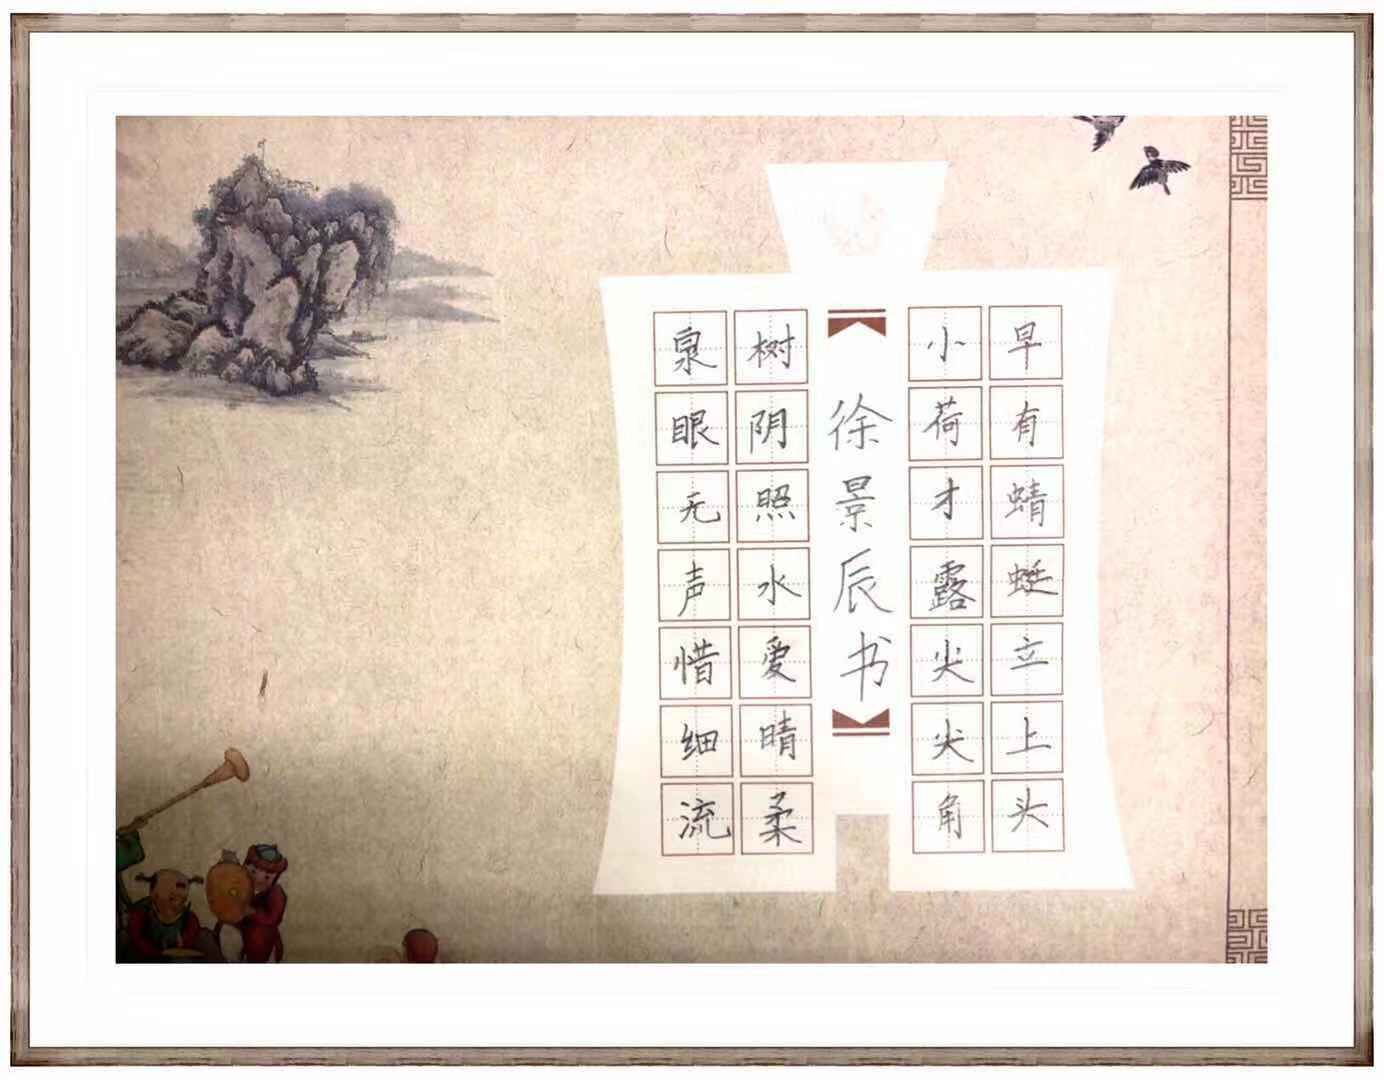 泉眼无声惜细流
树阴照水爱晴柔
徐景辰书
小荷才露尖尖角
早有蜻蜓立上头